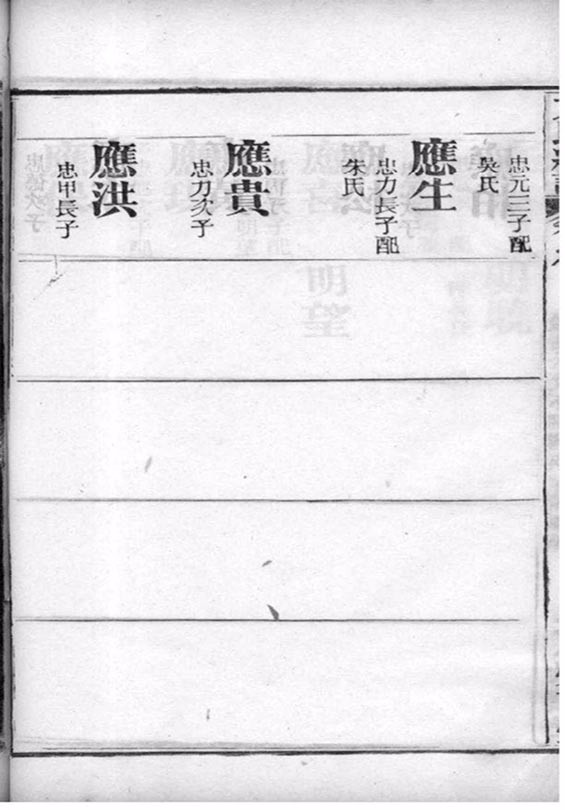 忠元三子配
吳氏
應生
忠力長子配
朱氏
應貴
忠力次子
應洪
忠甲長子